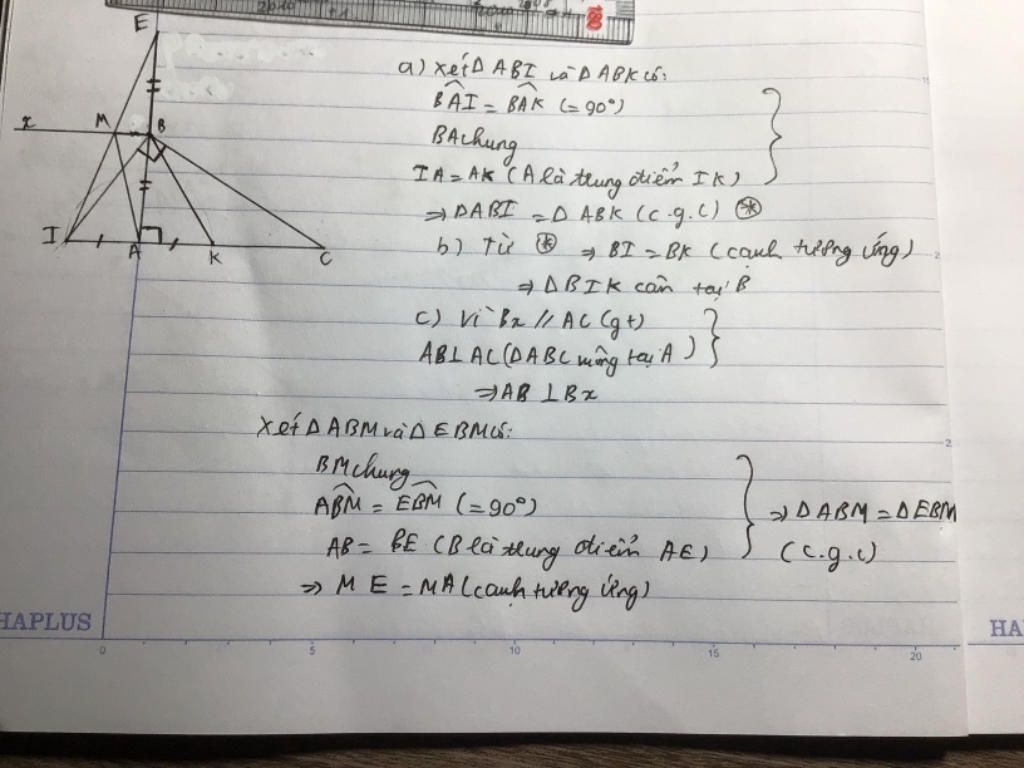 E
M
B
x
I
A
K
C
a) Xét Δ ABI và Δ ABK có:
BAI = BAK (= 90°)
BA chung
IA = AK (A là trung điểm IK)
⇒ Δ ABI = Δ ABK (c.g.c) ⊛
b) Từ ⊛ ⇒ BI = BK (cạnh tương ứng)
⇒ Δ BIK cân tại B
c) Vì Bx // AC (gt)
AB ⊥ AC (Δ ABC vuông tại A)
⇒ AB ⊥ Bx
Xét Δ ABM và Δ EBM có:
BM chung
ABM = EBM (= 90°)
AB = BE (B là trung điểm AE)
⇒ Δ ABM = Δ EBM
(c.g.c)
⇒ ME = MA (cạnh tương ứng)
HAPLUS
HA
0 5 10 15 20